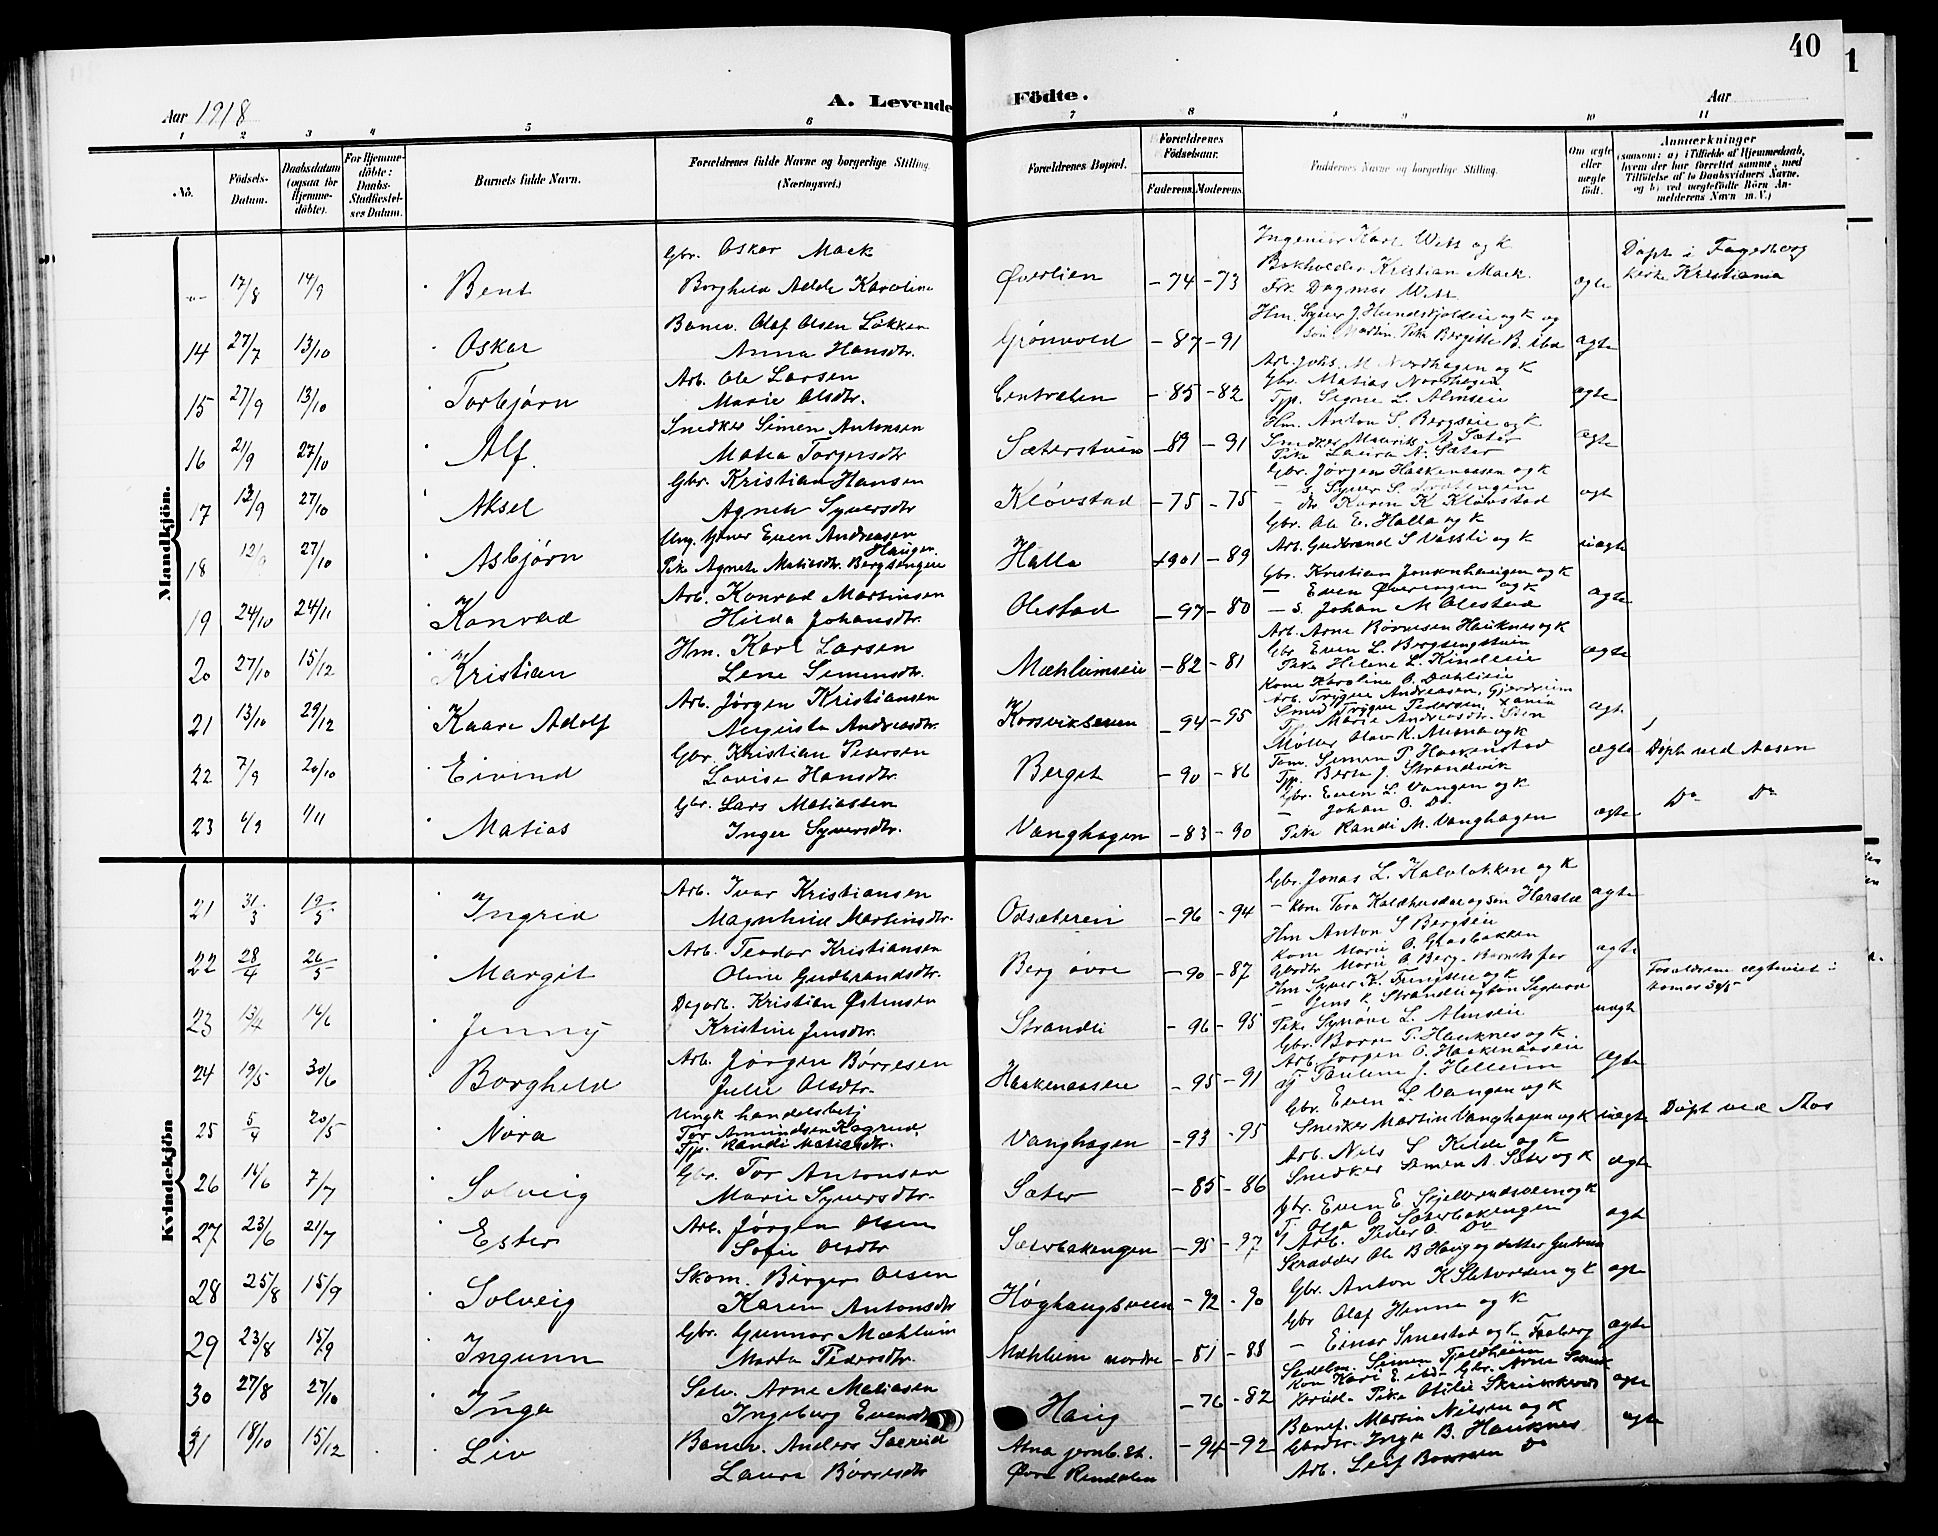 40
1
Aar 1918
A. Levende Födte.
Aar
1 2 3 4 5 6 7 8 9 10 11
No.
Födsels-Datum.
Daabsdatum (ogsaa for Hjemme-döbte).
For Hjemme-döbte: Daabs-Stadfæstel-ses Datum.
Barnets fulde Navn.
Forældrenes fulde Navne og borgerlige Stilling. (Næringsvei.)
Forældrenes Bopæl.
Forældrenes Födselsaar.
Faderens. Moderens.
Faddernes Navne og borgerlige Stilling.
Om ægte eller uægte födt.
Anmærkninger (saasom: a) i Tilfælde af Hjemmedaab, hvem der har forrettet samme, med Tilföielse af to Daabsvidners Navne. og b) ved uægtefödte Börn An-melderens Navn m. V.)
Mandkjön.
17/8 14/9 Bent
Gbr. Oskar Mack
Borghild Adele Karoline
Øverlien -74 -73
Ingeniør Karl Witt og K
Bokholder Kristian Mack.
Frk. Dagmar Witt
ægte
Døpt i Fagerborg
kirke Kristiania
14 27/7 13/10 Oskar
Banev. Olaf Olsen Løkken
Anna Hansdtr.
Grønvold -87 -91
ægte
15 27/9 13/10 Torbjørn
Arb. Ole Larsen
Marie Olsdtr.
Centralen -85 -82
Arb. Johs. M Nordhagen og K
Gbr. Matias Nordhagen
Tjp. Signe L. Almseie
ægte
16 21/9 27/10 Alf.
Snedker Simen Antonsen
Matea Torgersdtr
Sæterstuen -89 -91
Hm. Anton S. Bergseie og K
Snedker Mauritz A Sæter
Pike Laura A. Sæter
ægte
17 13/9 27/10 Aksel
Gbr. Kristian Hansen
Agnete Syversdtr
Kløvstad -75 -75
Gbr. Jørgen Haakenaasen og K
dtr Karen K Kløvstad
ægte
18 12/9 27/10 Asbjørn
Ung. Gjner Even Andreasen Haugen
Pike Agnete Matiasdtr. Bergsengeie
Halla 1901 -89
Gbr. Ole E. Halla og K
Arb. Gudbrand S Vassli og K
uægte
19 24/10 24/11 Konrad
Arb. Konrad Martinsen
Hilda Johansdtr.
Olestad -97 -80
Gbr. Kristian Jonsonhaugen og K
- Even Øverengen og K
- s. Johan M Olestad
ægte
20 27/10 15/12 Kristian
Hm. Karl Larsen
Lene Simensdtr.
Mæhlumseie -82 -81
Arb. Arne Børresen Hauknes og K
Gbr Even L. Bergsengstuen
Pike Helene L. Kindleie
ægte
21 13/10 29/12 Kaare Adolf
Arb. Jørgen Kristiansen
Augusta Andreasdtr.
Korsviksveen -94 -95
Kone Karoline O. Dæhlieie
Arb. Trygve Andreasen, Gjerdrum
Smed Trygve Pedersen, Xania
Tj. Marie Andreasdtr. Sten
ægte
22 7/9 20/10 Eivind
Gbr. Kristian Petersen
Lovise Hansdtr.
Berget -90 -86
Møller Olav K. Austna og K
Tøm. Simen P. Haakenstad
Tjp. Berta J. Strandvik
ægte
Døpt ved Aasen
23 6/9 1/11 Matias
Gbr. Lars Matiassen
Inger Syversdtr.
Vanghagen -83 -90
Gbr. Even L. Vangen og K
- Johan O. Do.
Pike Randi M. Vanghagen
ægte
Do Do
Kvindekjön
21 31/3 19/5 Ingrid
Arb. Ivar Kristiansen
Magnhild Martinsdtr.
Odsæterei -96 -94
Gbr. Jonas L. Kalvløkken og K
Hm Anton S Bergseie
ægte
22 28/4 26/5 Margit
Arb. Teodor Kristiansen
Oline Gudbrandsdtr.
Berg øvre -90 -87
Kone Marie O. Glasbakken
Gbrdtr Marie O. Berg. Barnets far
ægte
23 13/4 16/6 Jenny
Dagarb. Kristian Østensen
Kristine Jensdtr.
Strandli -96 -95
Hm. Syver K. Frengseie og K
- Jens K. Strandli og søn Sigvard
Pike Synøve L. Almseie
uægte
Forældrene ægteviet i
sommer 30/5
24 19/5 30/6 Borghild
Arb. Jørgen Børresen
Julie Olsdtr.
Haakenaaseie -95 -91
Gbr. Børre P. Hauknes og K.
Arb. Jørgen O. Haakenaaseie
Tj Pauline J. Hellum
ægte
25 5/4 20/5 Nora
Ungk handelsbetj
Tor Amundsen Kagrud.
Tjp. Randi Matiasdtr.
Vanghagen -93 -95
Gbr. Even L Vangen og K
Snedker Martin Vanghagen og K
uægte
Døpt ved Aas
26 14/6 7/7 Solveig
Gbr. Tor Antonsen
Marie Syversdtr.
Sæter -85 -86
Arb. Nels S Kilde og K
Snedker Simen A. Sæter og K
ægte
27 23/6 21/7 Ester
Arb. Jørgen Olsen
Sofie Olsdtr
Sæterbakengen -95 -97
Gbr. Even E. Stjellerudsveen og K
Tj Olga O. Sæterbakengen
Arb. Peder O. Do
ægte
28 25/8 15/9 Solveig
Skom. Birger Olsen
Karen Antonsdtr
Høghaugsveen -92 -90
Skrædder Ole B Haug og datter Gudrun
Gbr. Anton K Sletvolden og K
ægte
29 23/8 15/9 Ingunn
Gbr. Gunnar Mæhlum
Marta Pedersdtr.
Mæhlum nordre -81 -88
Gbr Olaf Hinna og K
- Einar Smestad og K Faaberg
ægte
30 27/8 27/10 Inga
Selv. Arne Matiasen
Ingeborg Evensdtr
Haug -76 -82
Sadelm. Simen Tjeldheim
ægte
31 18/10 15/12 Liv
Banev. Anders Saxrud
Laura Børresdtr
Atna jernb. st.
Øvre Rendalen
-94 -92
Banef. Martin Nilsen og K
Gbrdtr. Inga B. Hauknes
Arb. Leif Børresen Do
ægte